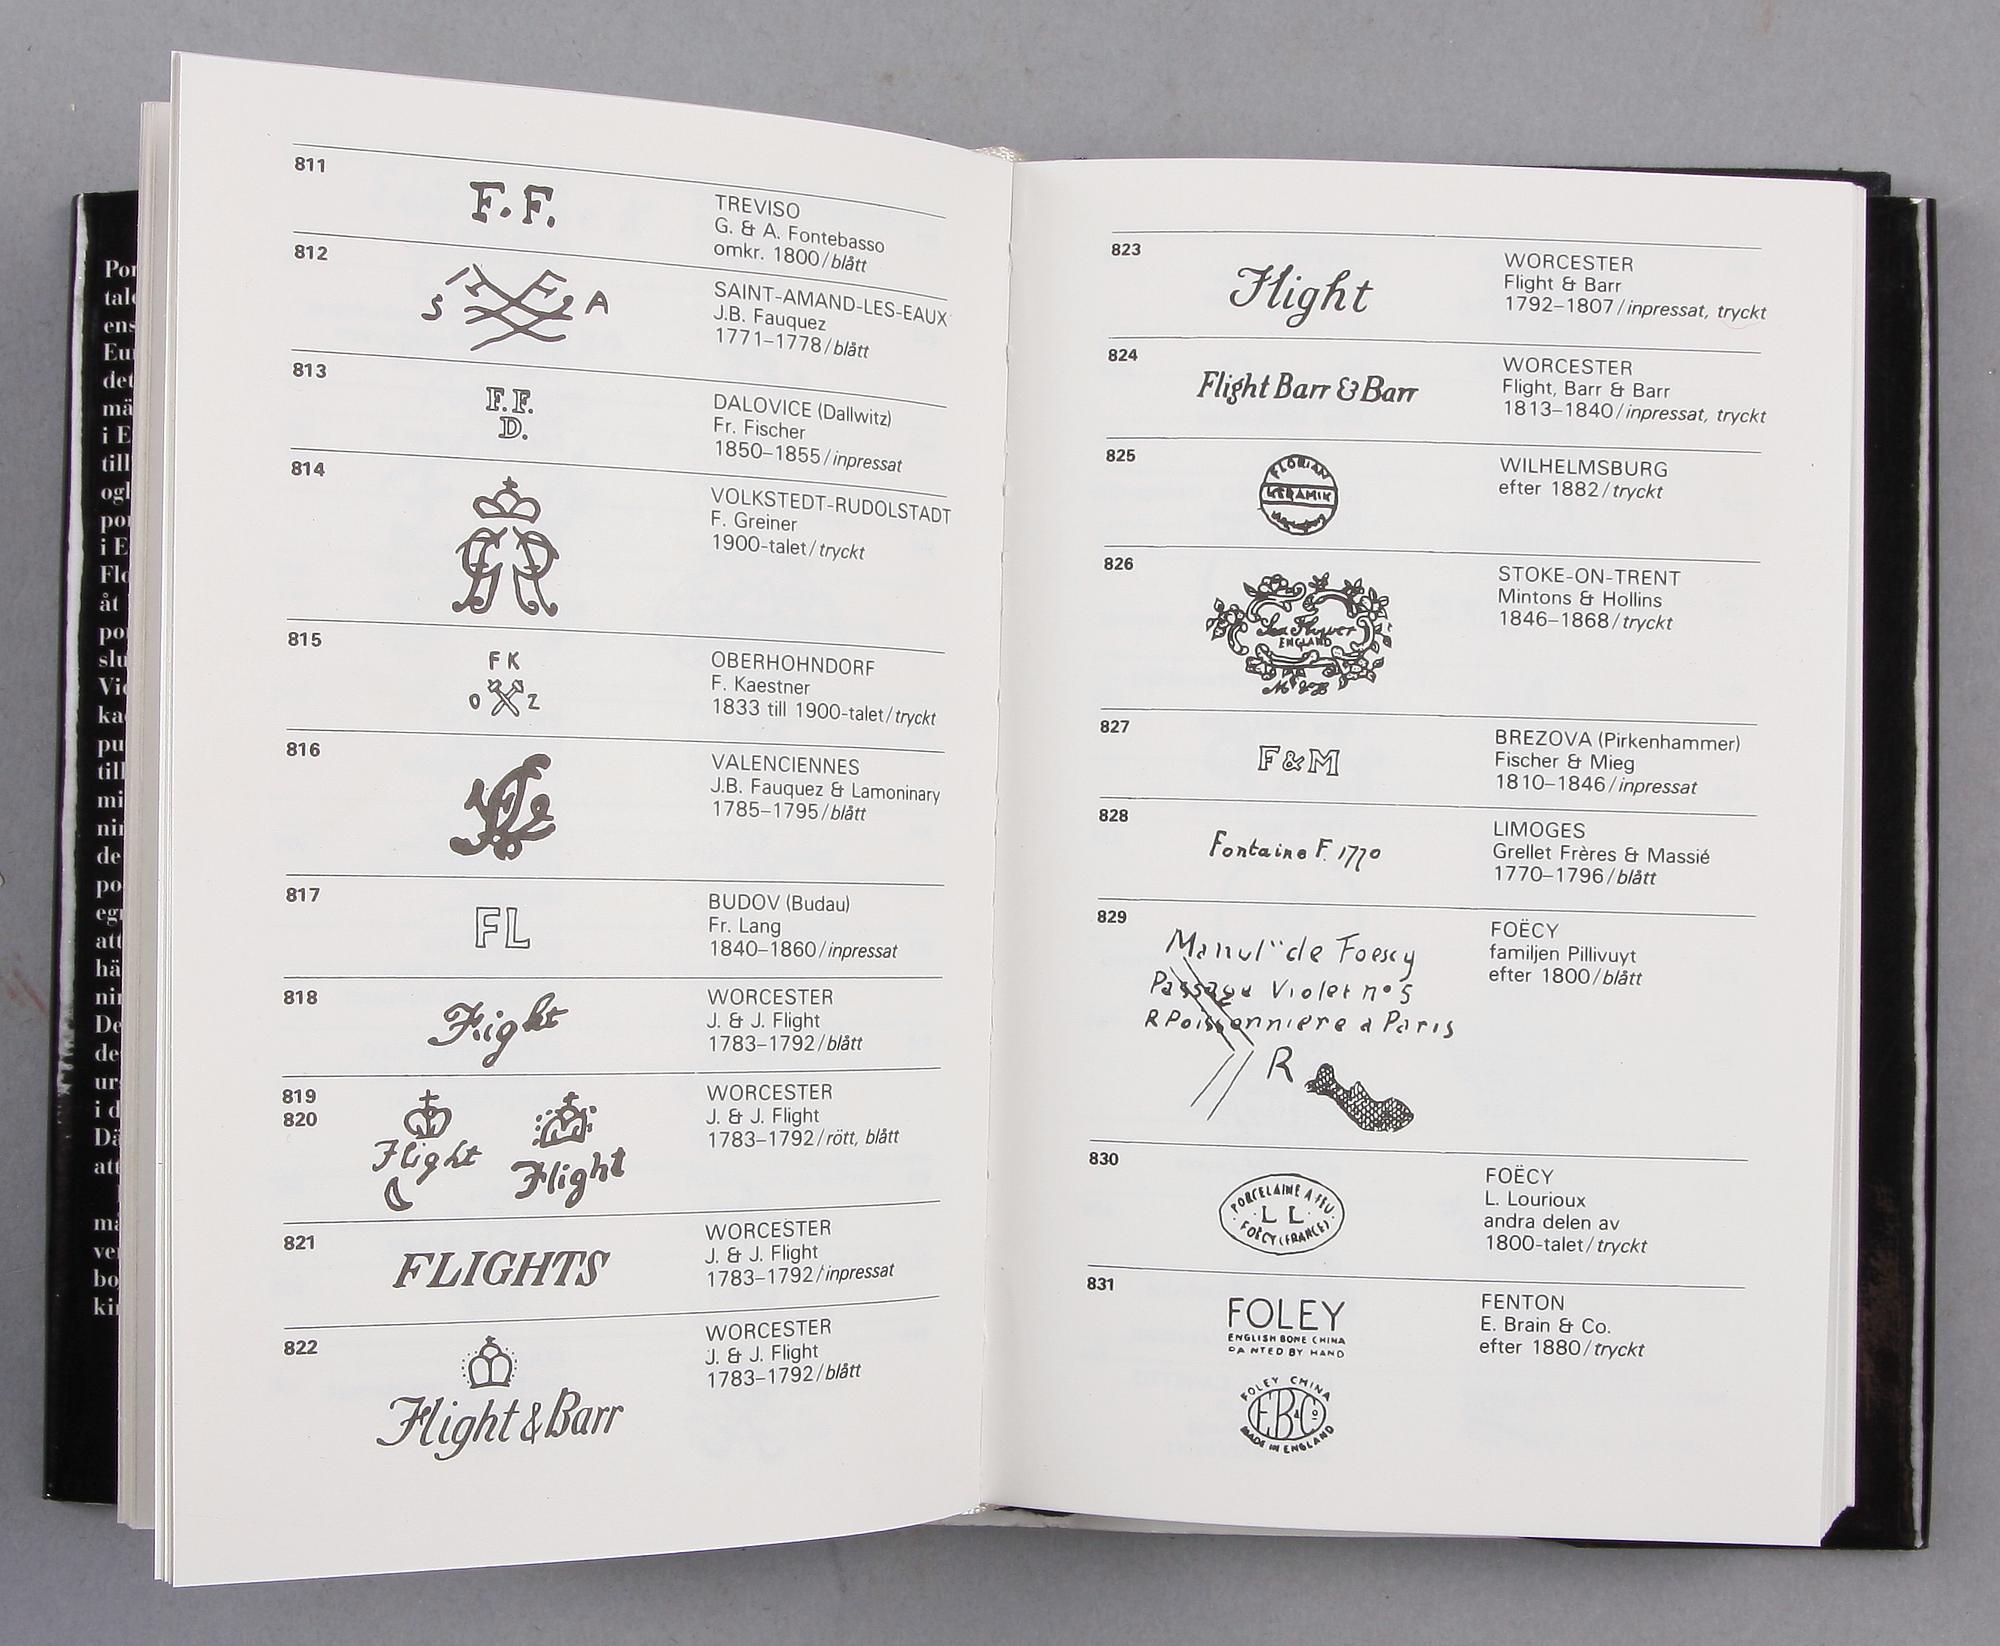 811
F. F.
TREVISO
G. & A. Fontebasso
omkr. 1800/blått
812
S A
SAINT-AMAND-LES-EAUX
J.B. Fauquez
1771–1778/blått
813
F. F.
D.
DALOVICE (Dallwitz)
Fr. Fischer
1850–1855/inpressat
814
VOLKSTEDT-RUDOLSTADT
F. Greiner
1900-talet/tryckt
815
F K
O Z
OBERHOHNDORF
F. Kaestner
1833 till 1900-talet/tryckt
816
VALENCIENNES
J.B. Fauquez & Lamoninary
1785–1795/blått
817
FL
BUDOV (Budau)
Fr. Lang
1840–1860/inpressat
818
Flight
WORCESTER
J. & J. Flight
1783–1792/blått
819
820
Flight
Flight
WORCESTER
J. & J. Flight
1783–1792/rött, blått
821
FLIGHTS
WORCESTER
J. & J. Flight
1783–1792/inpressat
822
Flight & Barr
WORCESTER
J. & J. Flight
1783–1792/blått
823
Flight
WORCESTER
Flight & Barr
1792–1807/inpressat, tryckt
824
Flight Barr & Barr
WORCESTER
Flight, Barr & Barr
1813–1840/inpressat, tryckt
825
FLORIAN
KERAMIK
WILHELMSBURG
efter 1882/tryckt
826
Sea Flower
ENGLAND
M & H
STOKE-ON-TRENT
Mintons & Hollins
1846–1868/tryckt
827
F&M
BREZOVA (Pirkenhammer)
Fischer & Mieg
1810–1846/inpressat
828
Fontaine F. 1770
LIMOGES
Grellet Frères & Massié
1770–1796/blått
829
de Foescy
Passage Violet n° 5
R Poissonniere a Paris
R
FOËCY
familjen Pillivuyt
efter 1800/blått
830
PORCELAINE A FEU
L L
FOËCY (FRANCE)
FOËCY
L. Lourioux
andra delen av
1800-talet/tryckt
831
FOLEY
ENGLISH BONE CHINA
PA NTED BY HAND
FOLEY CHINA
E.B & Co
MADE IN ENGLAND
FENTON
E. Brain & Co.
efter 1880/tryckt